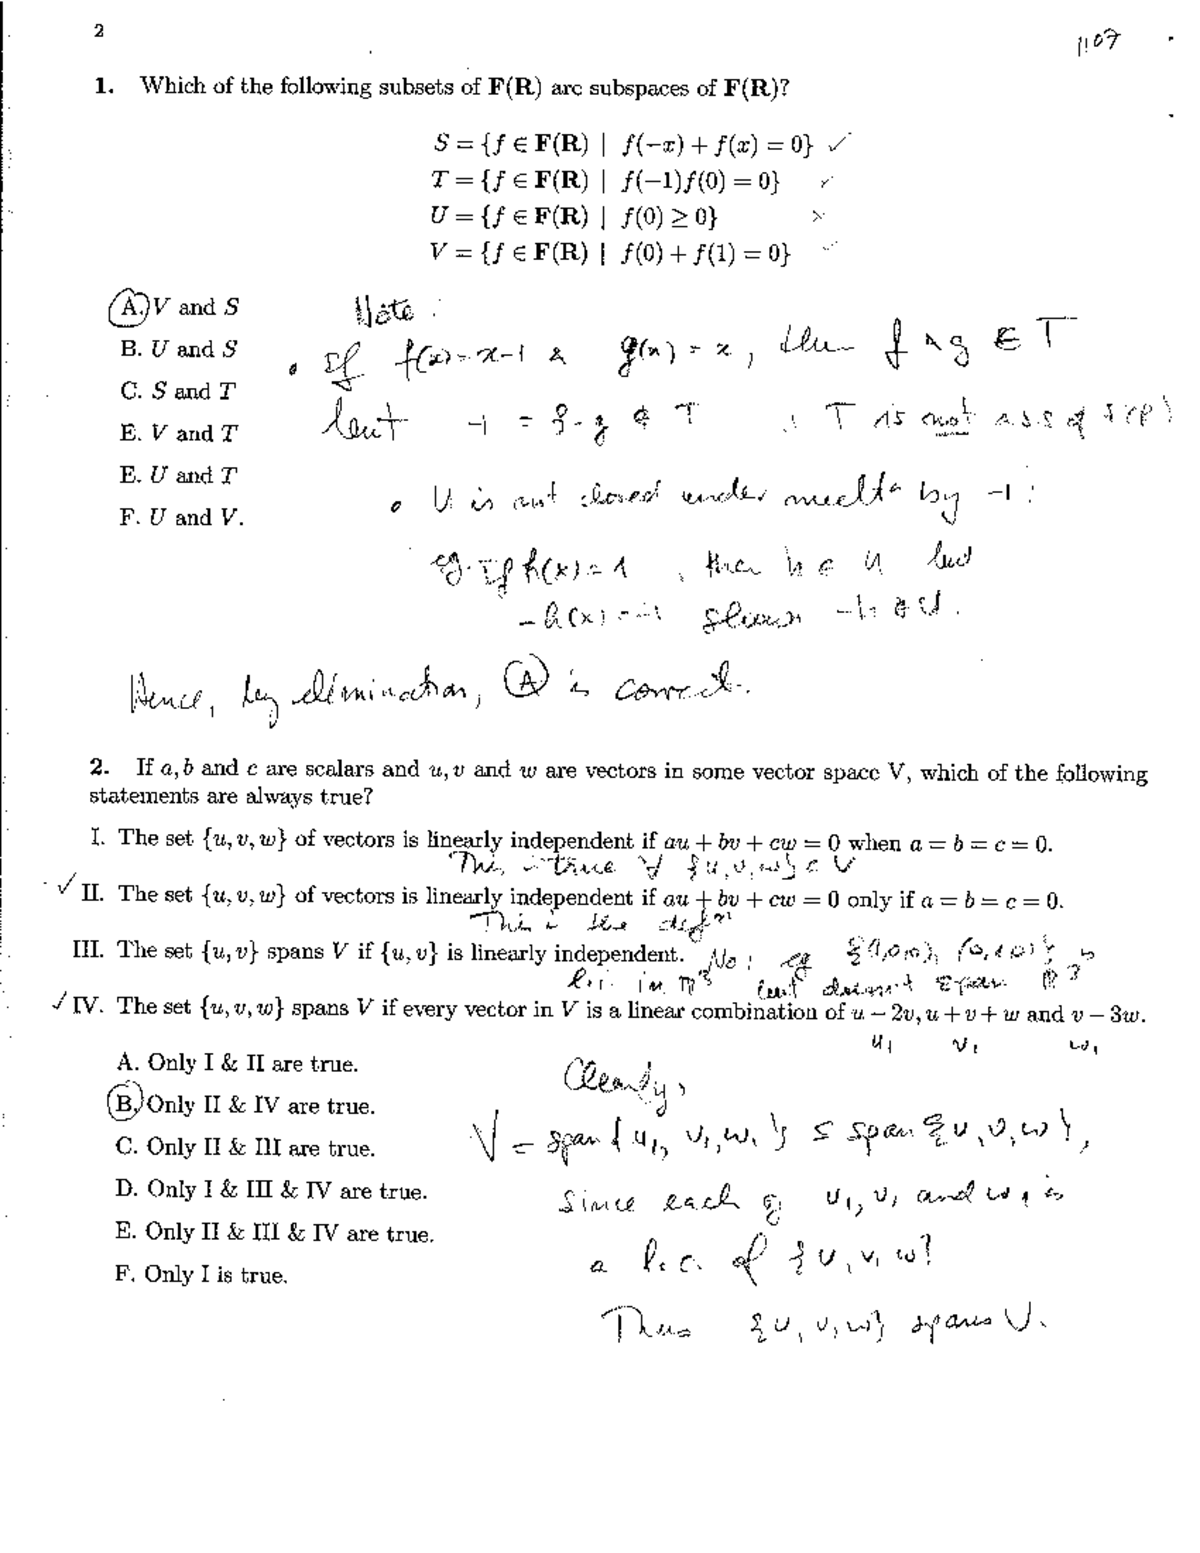 2
1. Which of the following subsets of F(R) are subspaces of F(R)?
S = {f ∈ F(R) | f(−x) + f(x) = 0} ✓
T = {f ∈ F(R) | f(−1)f(0) = 0}
U = {f ∈ F(R) | f(0) ≥ 0} ×
V = {f ∈ F(R) | f(0) + f(1) = 0} ✓
A. V and S
Note:
B. U and S
• If f(x) = x−1 & g(x) = x, then f, g ∈ T
C. S and T
but −1 = f−g ∉ T ∴ T is not a s.s of
E. V and T
E. U and T
• U is not closed under multn by −1:
F. U and V.
eg. If h(x) = 1, then h ∈ U but
−h(x) = −1 shows −h ∉ U.
Hence, by elimination, A is correct.
2. If a, b and c are scalars and u, v and w are vectors in some vector space V, which of the following
statements are always true?
I. The set {u, v, w} of vectors is linearly independent if au + bv + cw = 0 when a = b = c = 0.
This is true ∀ {u, v, w} ⊂ V
✓ II. The set {u, v, w} of vectors is linearly independent if au + bv + cw = 0 only if a = b = c = 0.
This is the defn
III. The set {u, v} spans V if {u, v} is linearly independent. No: eg {(1,0,0), (0,1,0)} is
l.i. in R³ but doesn't span R³
✓ IV. The set {u, v, w} spans V if every vector in V is a linear combination of u − 2v, u + v + w and v − 3w.
u₁ v₁ w₁
A. Only I & II are true.
Clearly,
B. Only II & IV are true.
V = span{u₁, v₁, w₁} ≤ span{u, v, w},
C. Only II & III are true.
D. Only I & III & IV are true.
since each of u₁, v₁ and w₁ is
E. Only II & III & IV are true.
a l.c. of {u, v, w}
F. Only I is true.
Thus {u, v, w} spans V.